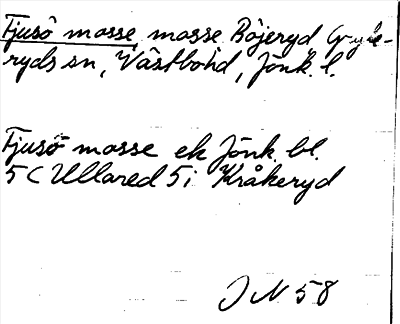 Fjusö mosse, mosse Böjeryd Gryte-
ryds sn, Västbo hd, Jönk. l.
Fjusö mosse ek Jönk. bl.
5 C Ullared 5 i Kråkeryd
J N 58